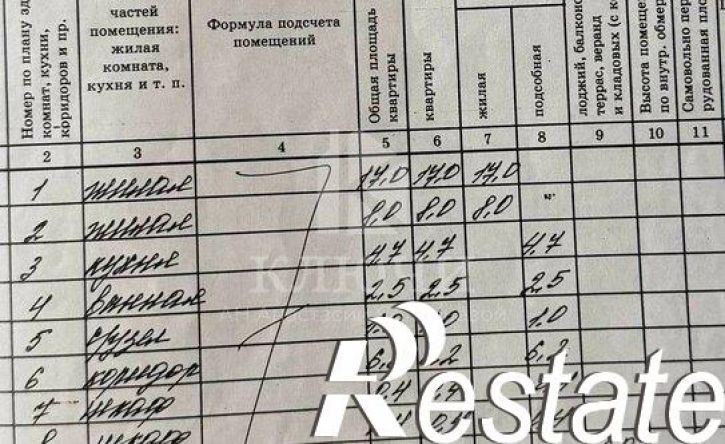 Номер по плану
комнат, кухни,
коридоров и пр.
частей
помещения:
жилая
комната,
кухня и т. п.
Формула подсчета
помещений
Общая площадь
квартиры
квартиры
жилая
подсобная
лоджий, балконов
террас, веранд
и кладовых (с
Высота
по внутр.
Самовольно
2 3 4 5 6 7 8 9 10 11
1 жилая 17,0 17,0 17,0
2 жилая 8,0 8,0 8,0 "
3 кухня 4,7 4,7 4,7
4 ванная 2,5 2,5 2,5
5 с/узел 1.0
6 коридор 6,2
7 шкаф
8 шкаф
Restate